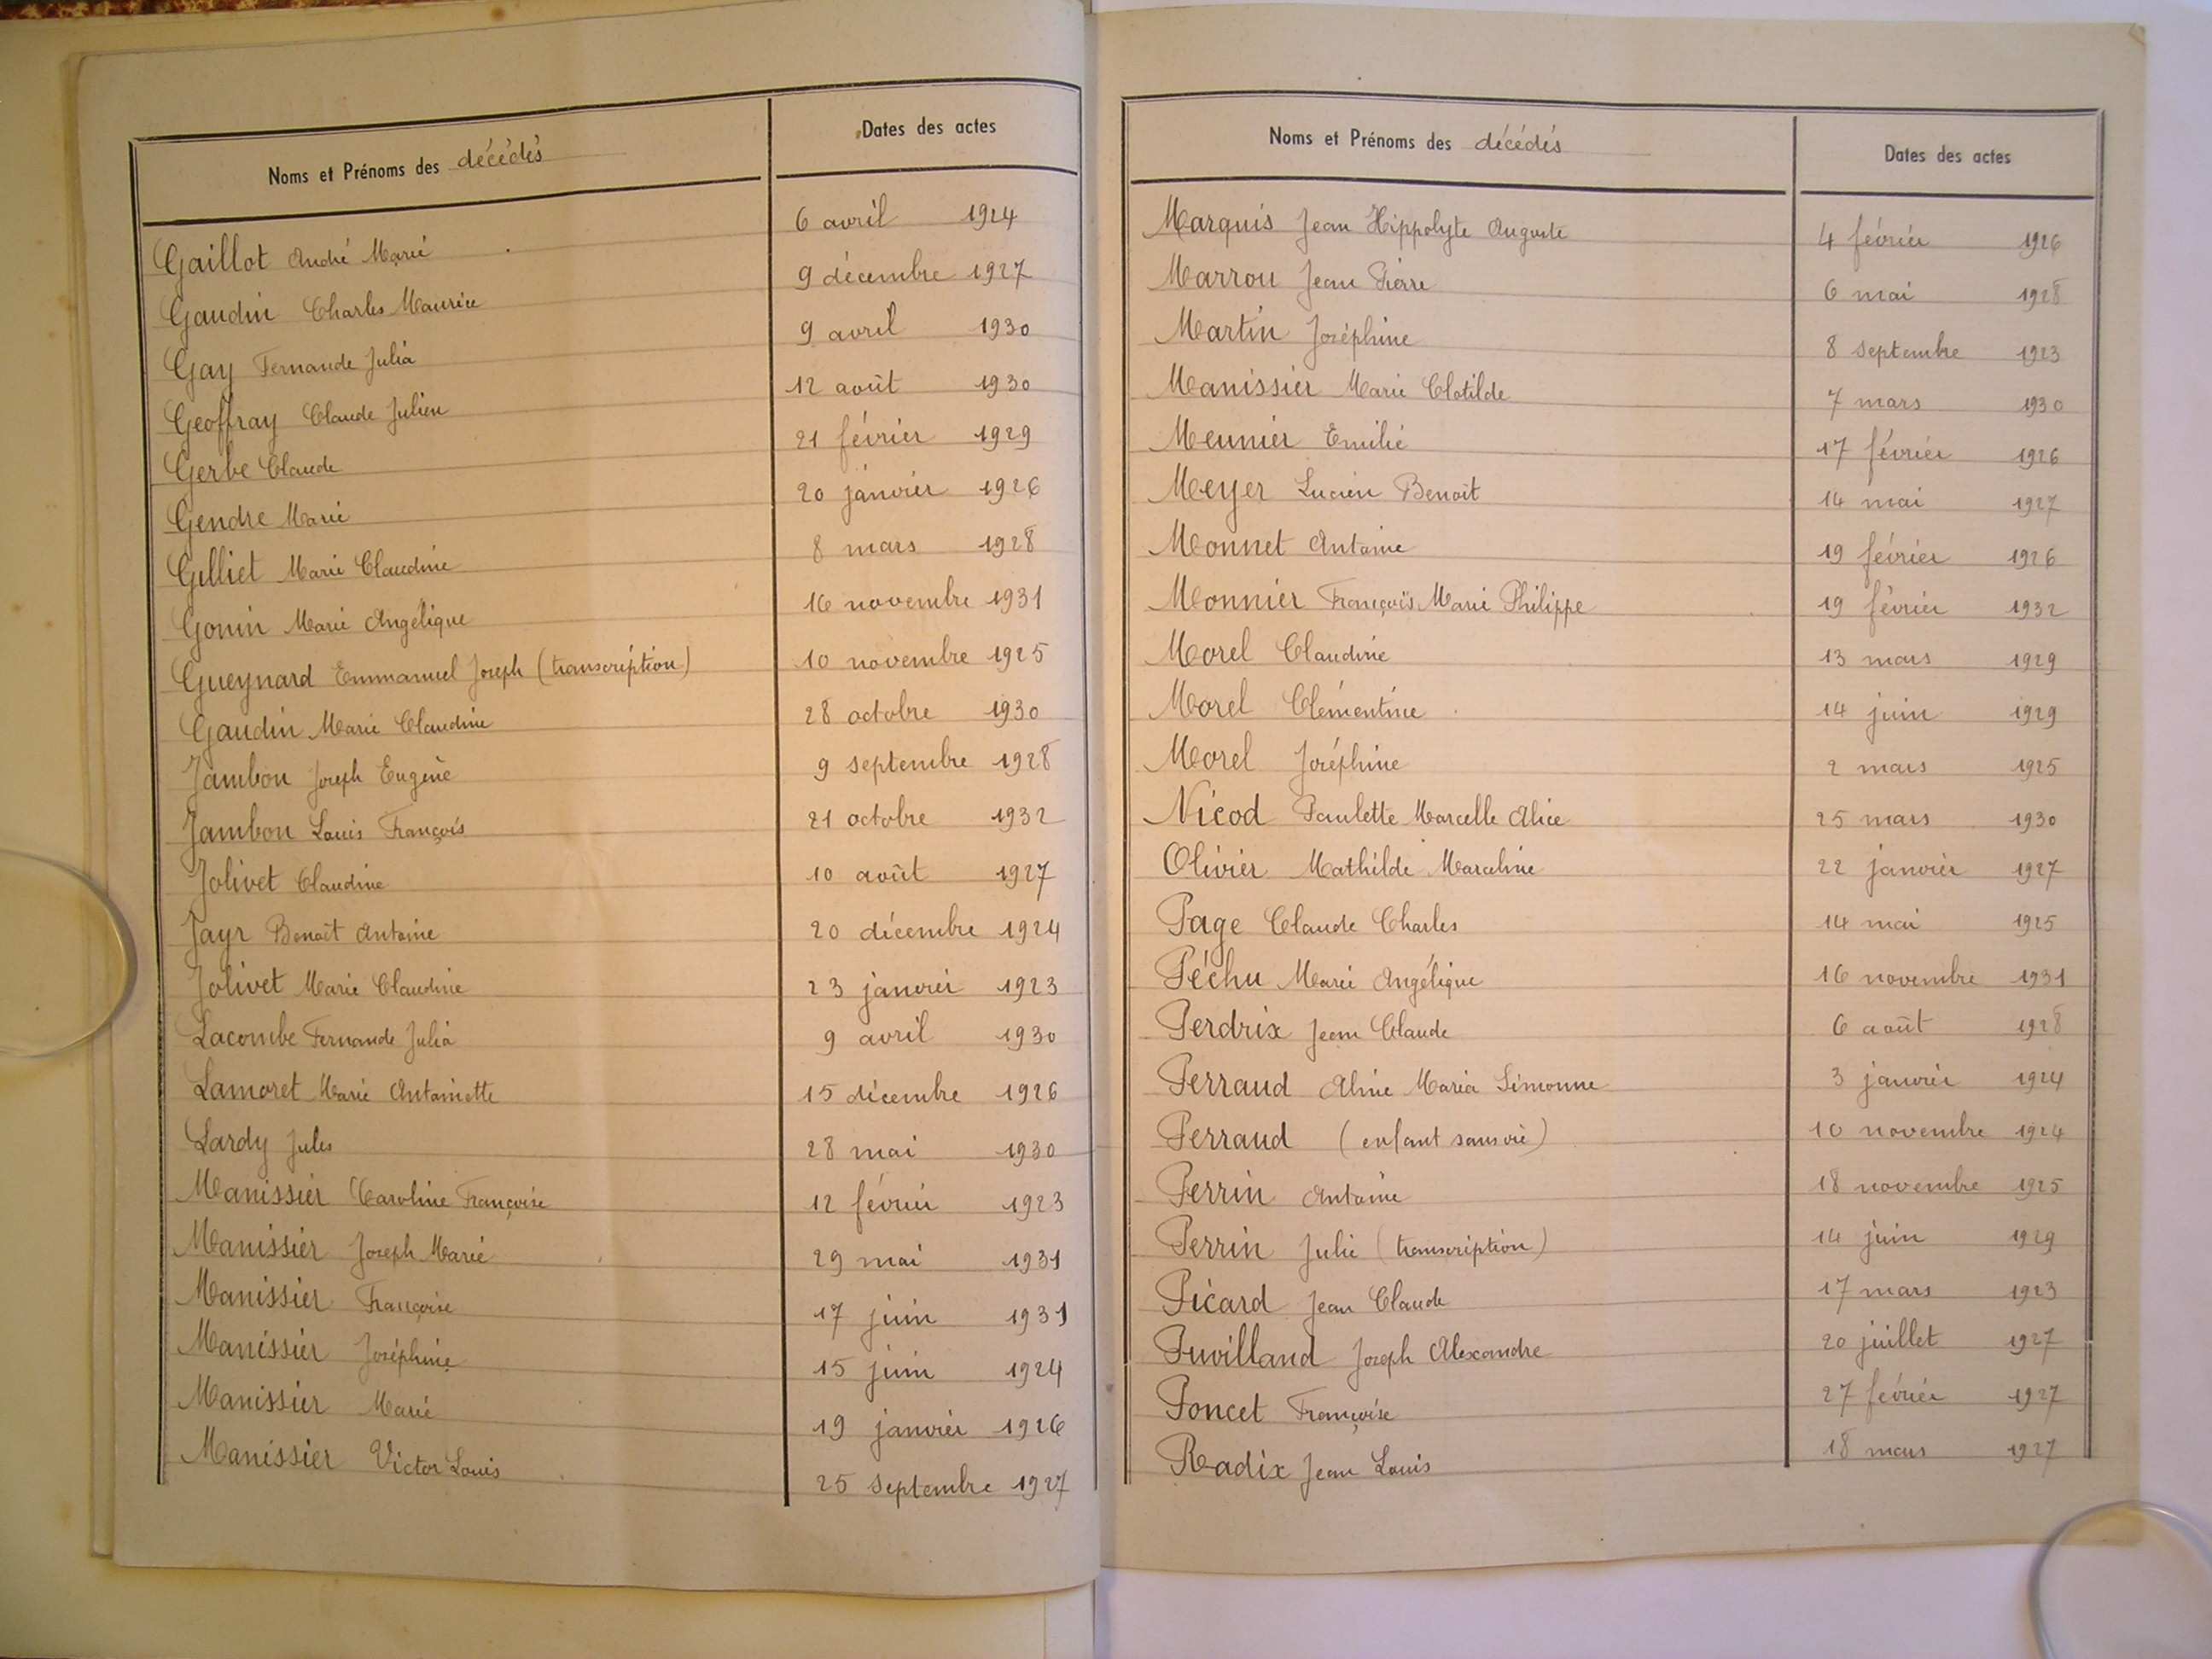 Noms et Prénoms des décédés Dates des actes
Gaillot André Marie 6 avril 1924
Gaudin Charles Maurice 9 décembre 1927
Gay Fernande Julia 9 avril 1930
Geoffray Claude Julien 12 août 1930
Gerbe Claude 21 février 1929
Gendre Marie 20 janvier 1926
Gilliet Marie Claudine 8 mars 1928
Gonin Marie Angélique 16 novembre 1931
Gueynard Emmanuel Joseph (transcription) 10 novembre 1925
Gaudin Marie Claudine 28 octobre 1930
Jambon Joseph Eugène 9 septembre 1928
Jambon Louis François 21 octobre 1932
Jolivet Claudine 10 août 1927
Jayr Benoît Antoine 20 décembre 1924
Jolivet Marie Claudine 23 janvier 1923
Lacombe Fernande Julia 9 avril 1930
Lamoret Marie Antoinette 15 décembre 1926
Lardy Jules 28 mai 1930
Manissier Caroline Françoise 12 février 1923
Manissier Joseph Marie 29 mai 1931
Manissier Françoise 17 juin 1931
Manissier Joséphine 15 juin 1924
Manissier Marie 19 janvier 1926
Manissier Victor Louis 25 septembre 1927
Noms et Prénoms des décédés Dates des actes
Marquis Jean Hippolyte Auguste 4 février 1926
Marrou Jean Pierre 6 mai 1928
Martin Joséphine 8 septembre 1923
Manissier Marie Clotilde 7 mars 1930
Meunier Emilie 17 février 1926
Meyer Lucien Benoît 14 mai 1927
Monnet Antoine 19 février 1926
Monnier François Marie Philippe 19 février 1932
Morel Claudine 13 mars 1929
Morel Clémentine 14 juin 1929
Morel Joséphine 2 mars 1925
Nicod Paulette Marcelle Alice 25 mars 1930
Olivier Mathilde Marceline 22 janvier 1927
Page Claude Charles 14 mai 1925
Péchu Marie Angélique 16 novembre 1931
Perdrix Jean Claude 6 août 1928
Perraud Aline Maria Simonne 3 janvier 1924
Perraud (enfant sans vie) 10 novembre 1924
Perrin Antoine 18 novembre 1925
Perrin Julie (transcription) 14 juin 1929
Picard Jean Claude 17 mars 1923
Puvilland Joseph Alexandre 20 juillet 1927
Poncet Françoise 27 février 1927
Radix Jean Louis 18 mars 1927